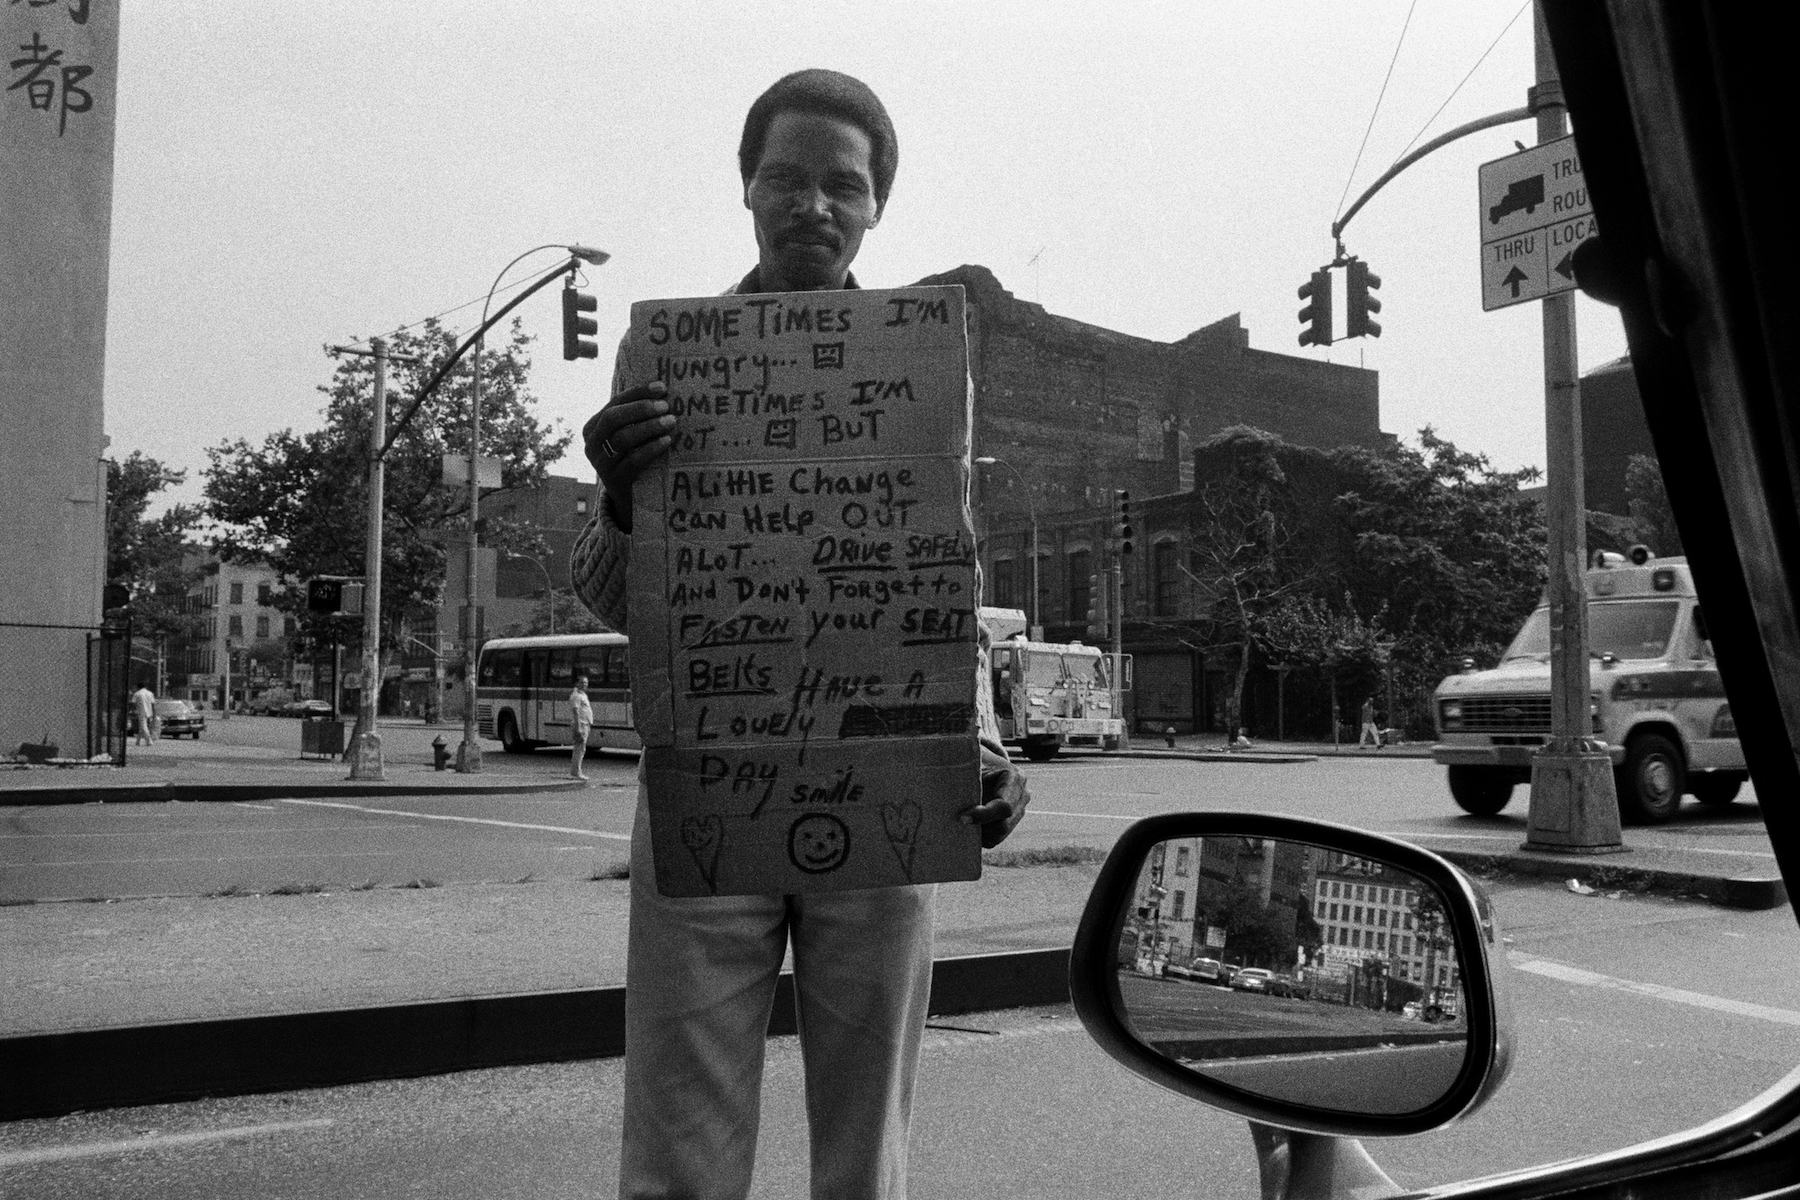 都
SOMETIMES I'M
HUNgry...
SOMETIMES I'M
NOT... BUT
A LittlE Change
CAN HElp OUT
A LOT... DRive SAFELY
And Don't ForgEt to
FASTEN your SEAT
BElts HAVE A
LovEly
DAy smilE
TRU
ROU
THRU LOCA